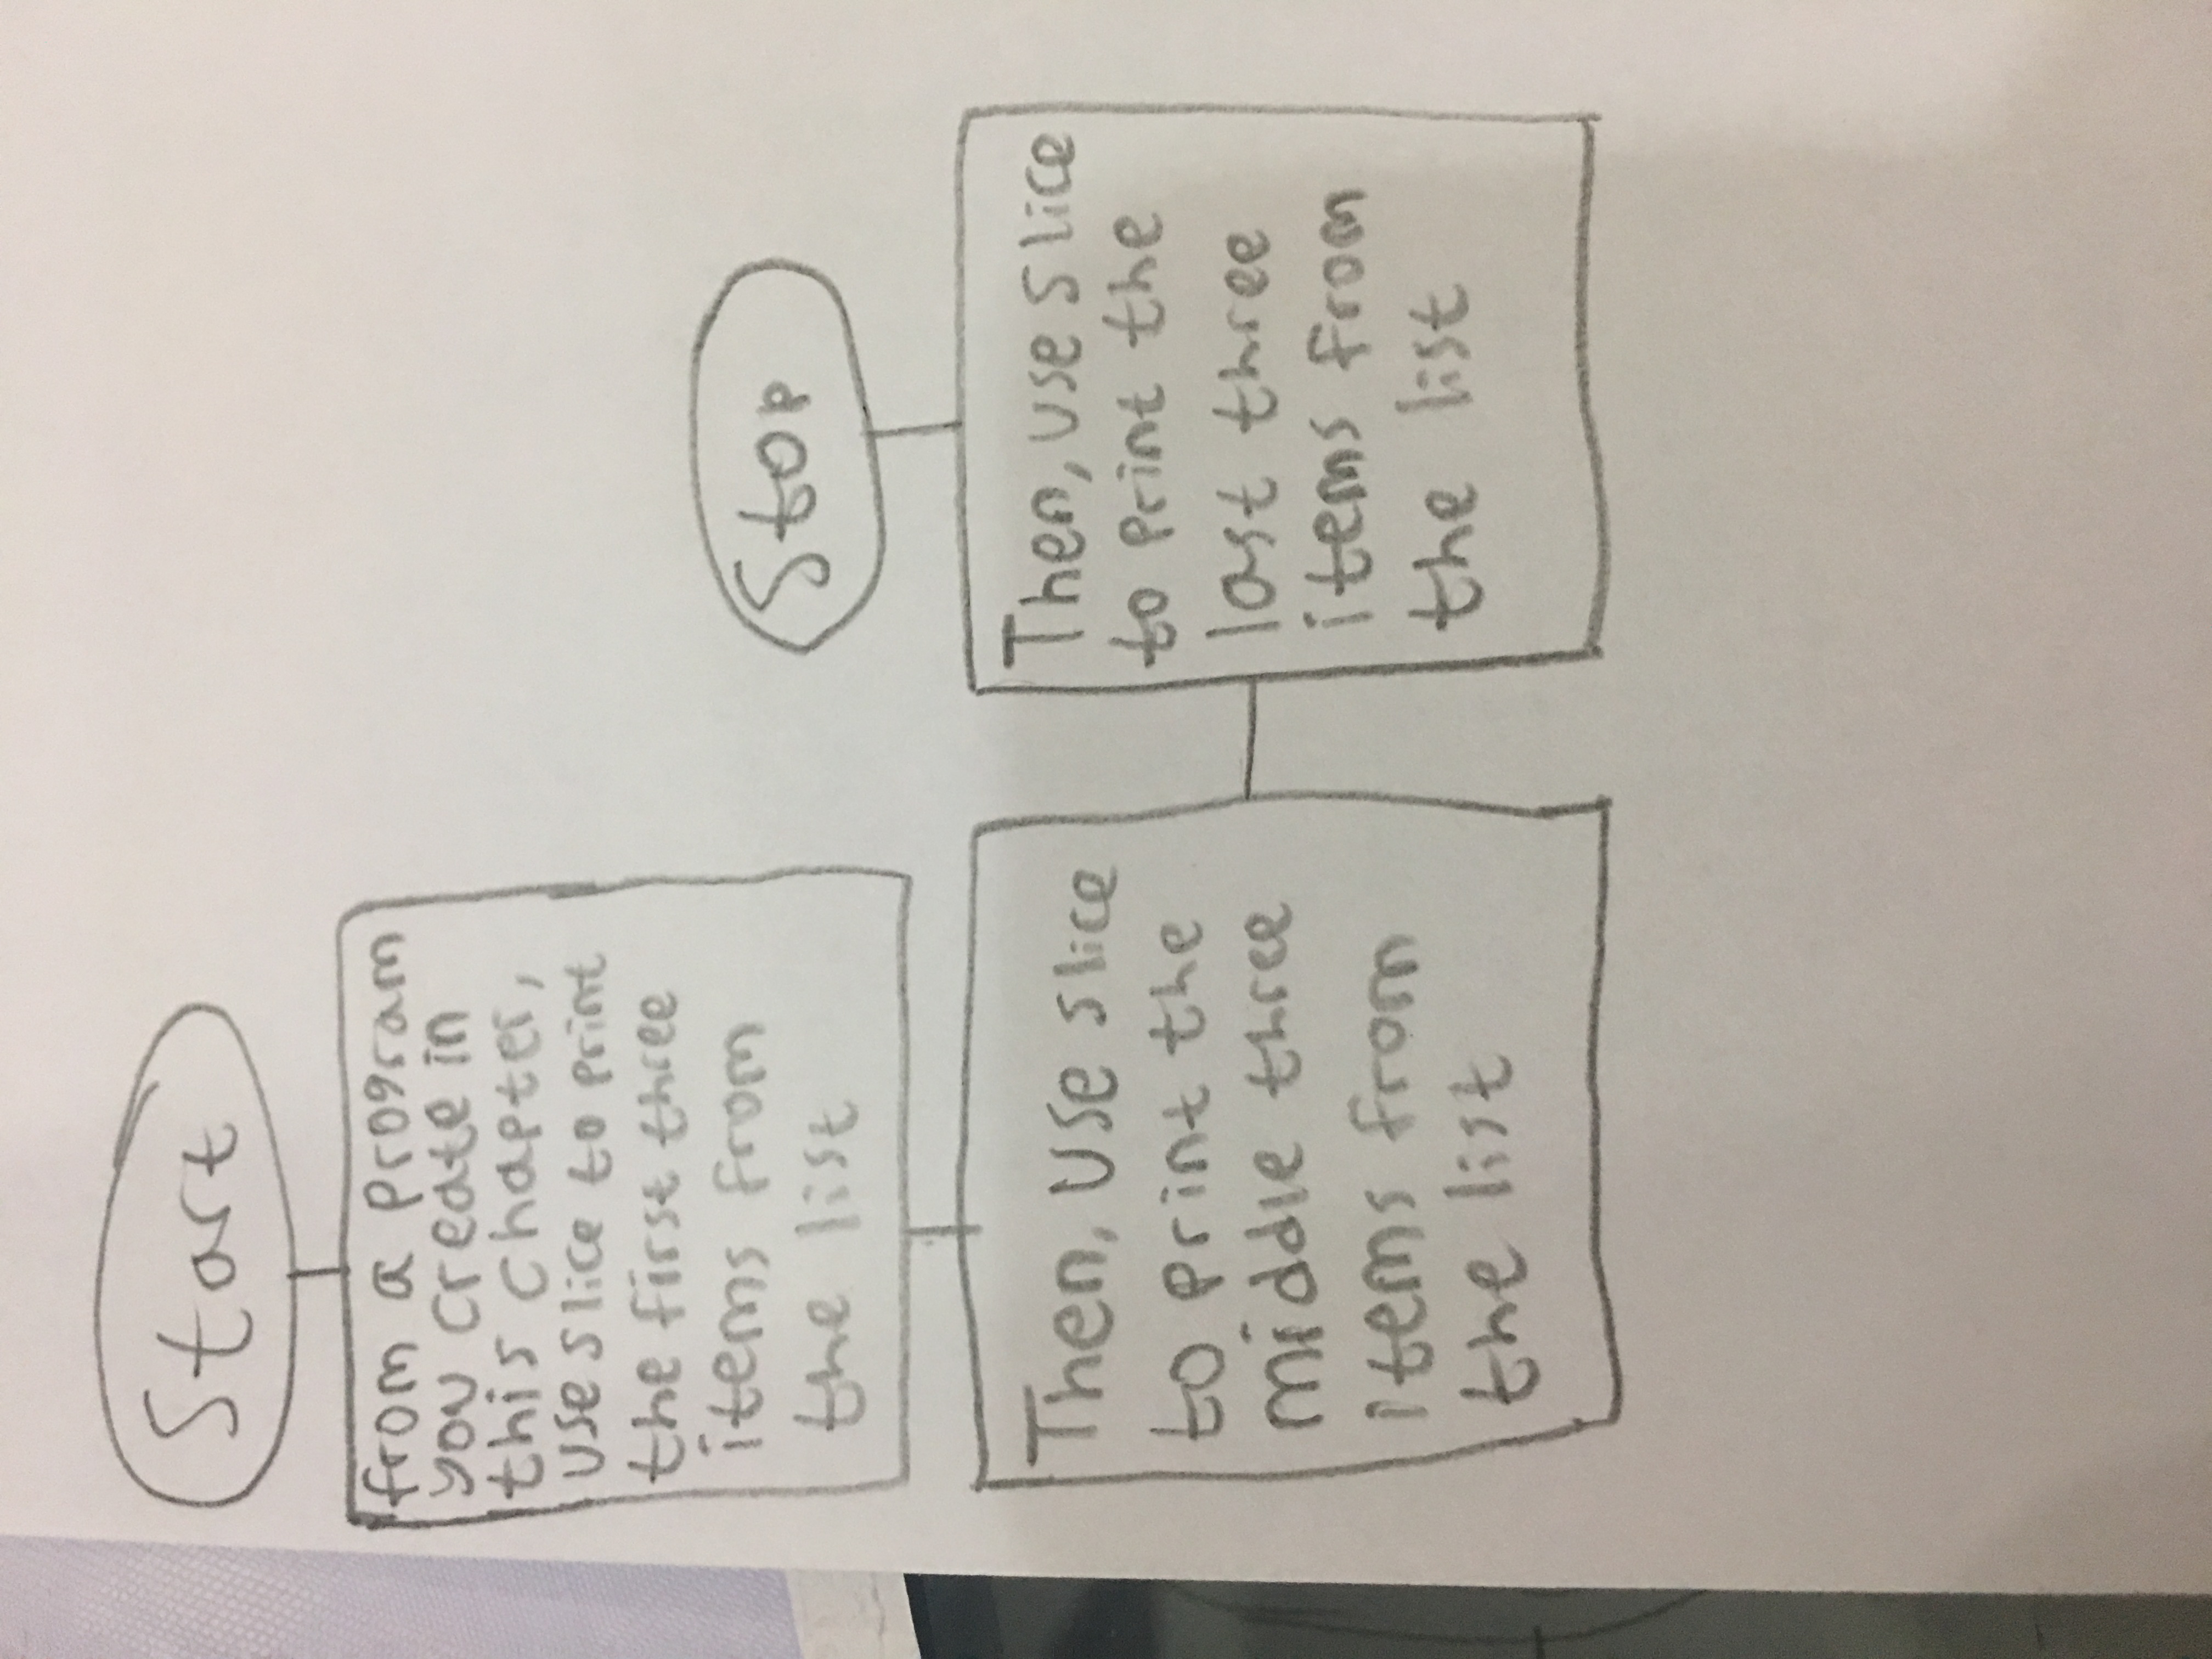 Start
from a program
you create in
this chapter,
use slice to print
the first three
items from
the list
Then, use slice
to print the
middle three
items from
the list
Then, use slice
to print the
last three
items from
the list
Stop